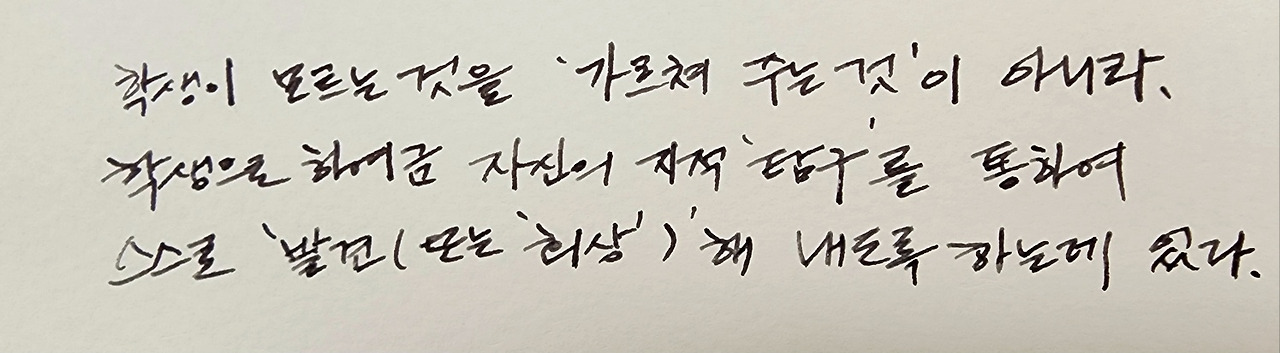 학생이 모르는 것을 '가르쳐 주는 것'이 아니라,
학생으로 하여금 자신의 지적 '탐구'를 통하여
스스로 '발견(또는 '회상')'해 내도록 하는데 있다.